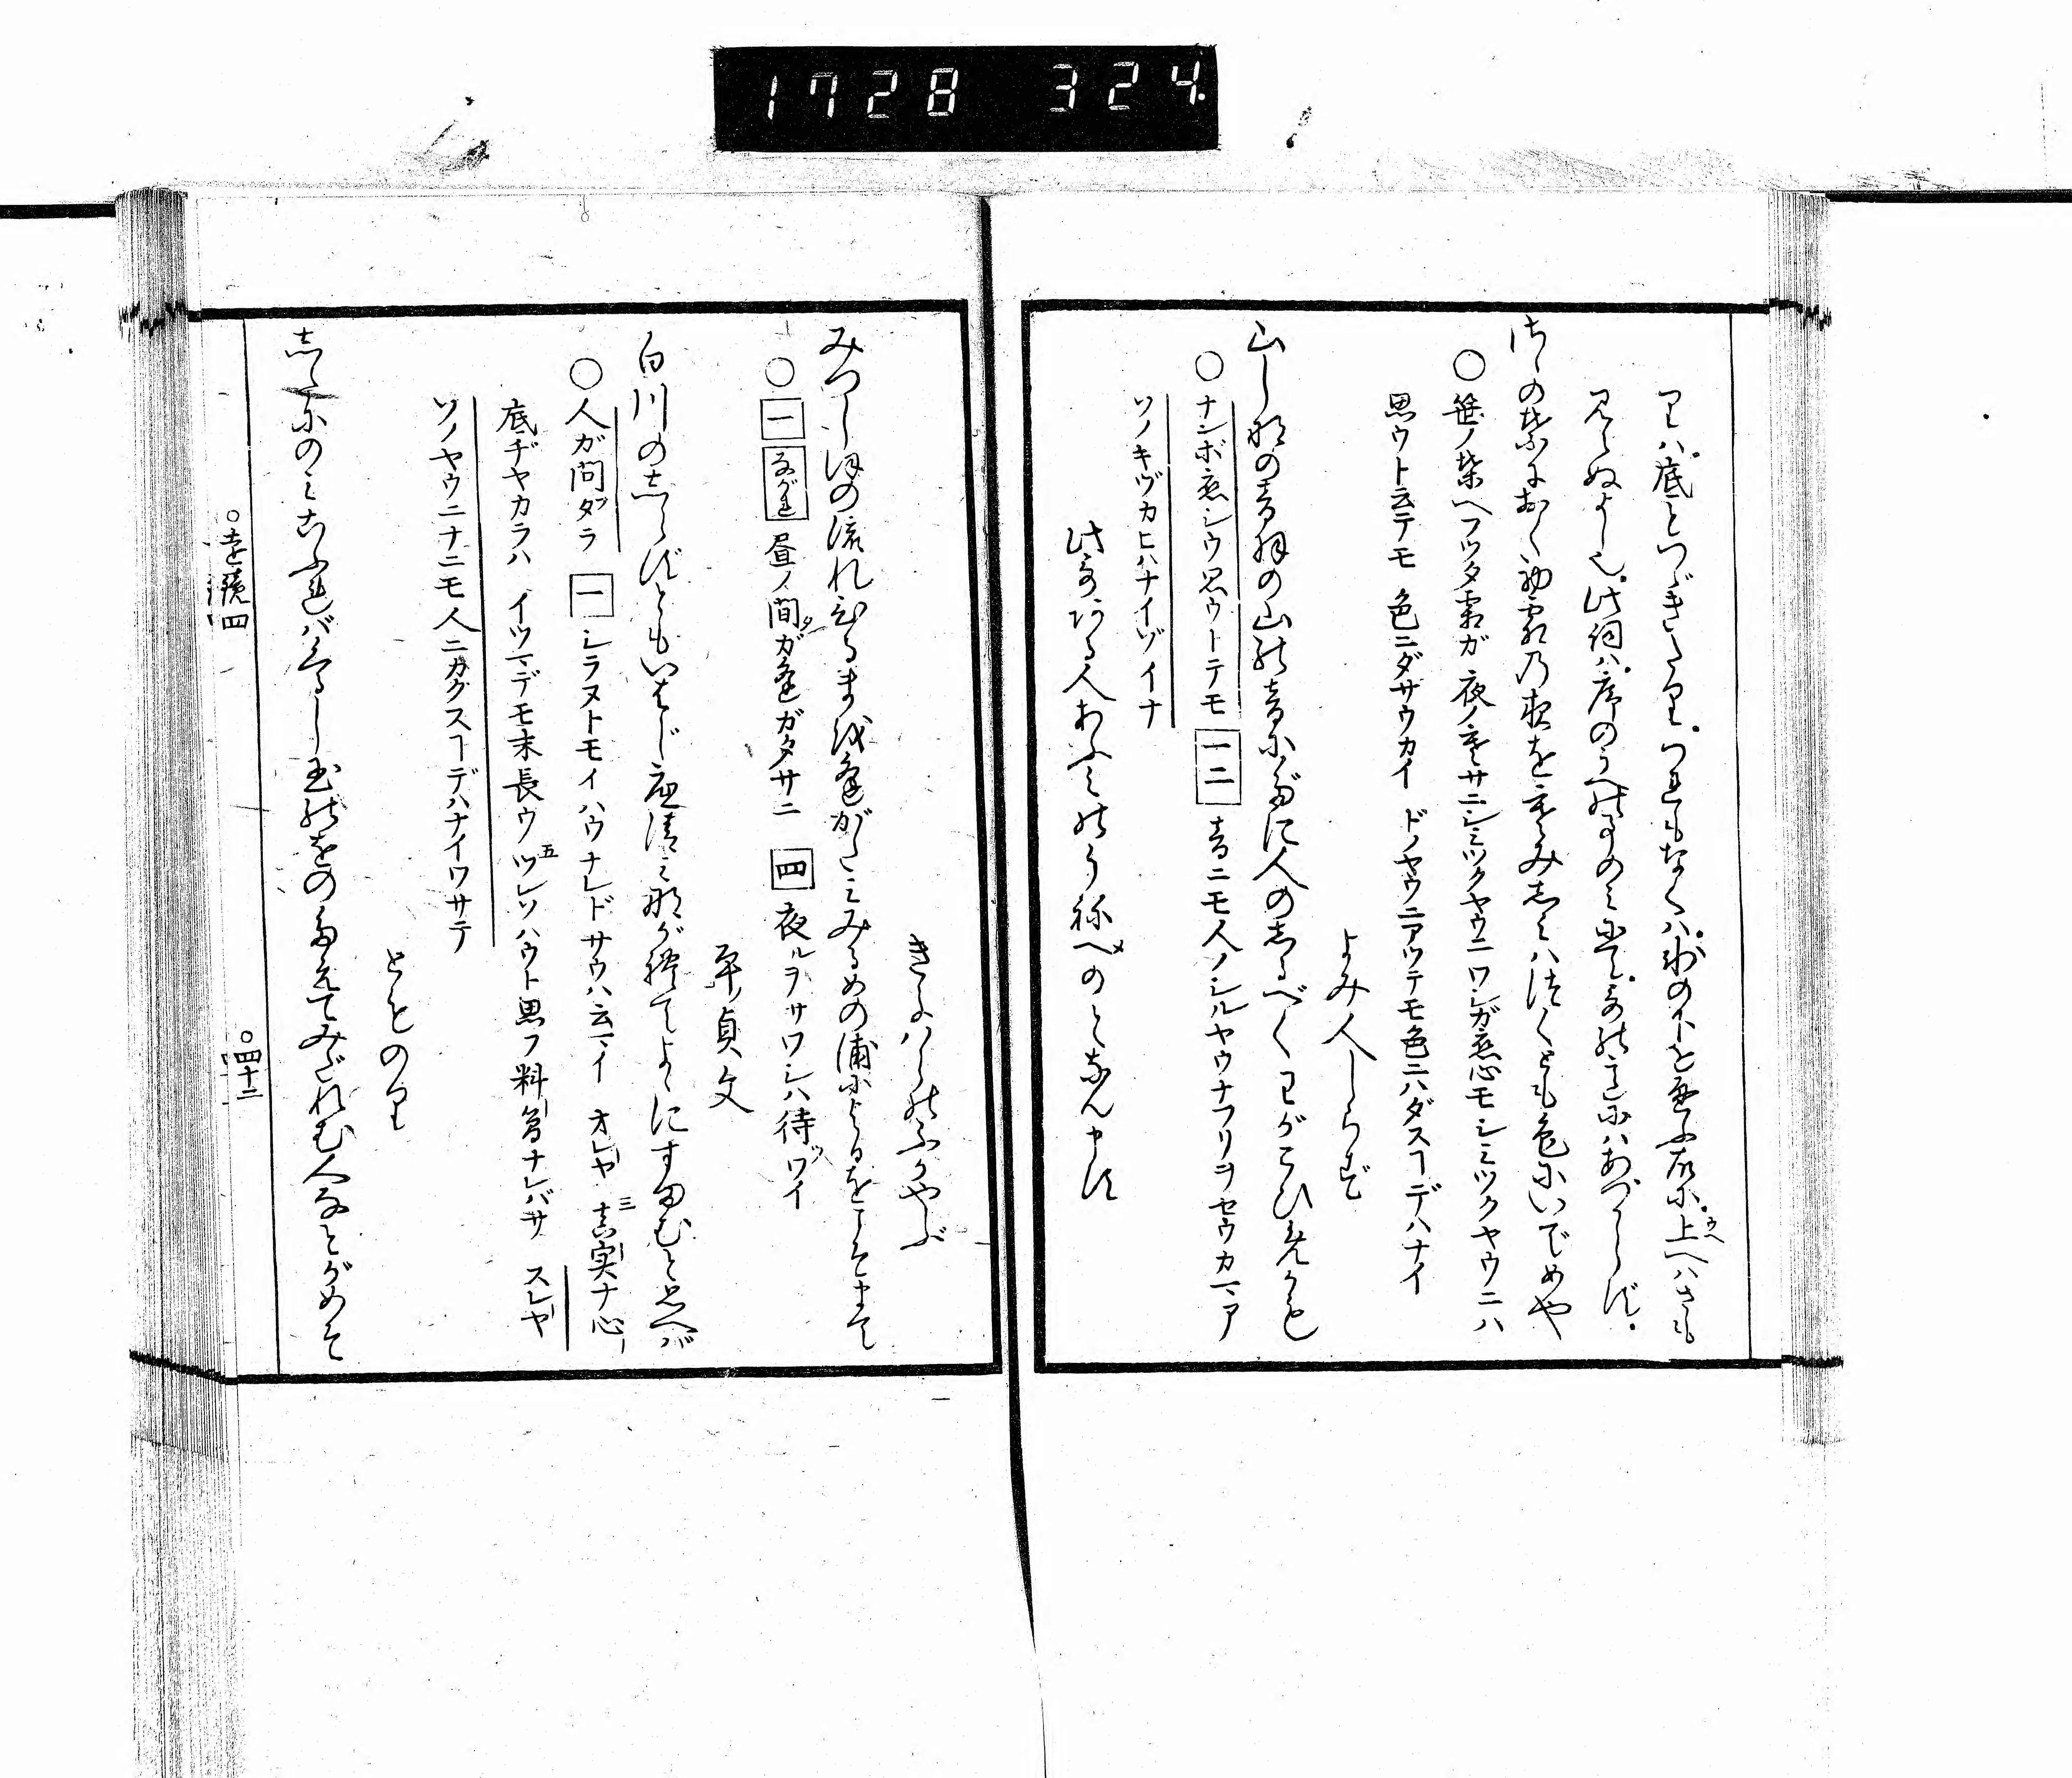 1728 324
りハ。底とつゞきたり。つれもなくハ。下を思ふ故に。上へハさも
見えぬよし也。此詞ハ。序のうへの事のみにて。哥の意にハあづからず。
さゝの葉におく初霜の夜をさむみしみハつくとも色にいでめや
○笹ノ葉ヘフツタ霜ガ 夜ノ寒サニシミツクヤウニワシガ恋心モシミツクヤウニハ
思ウト云テモ 色ニダサウカイ ドノヤウニアツテモ色ニハダスヿデハナイ
よみ人しらず
山しなの音羽の山の音にだに人のしるべくわがこひめかも
○ナンボ恋シウ思ウトテモ 一二 音ニモ人ノシルヤウナフリヲセウカマア
ソノキヅカヒハナイゾイナ
此哥ある人あふみのうねべのとなん申す
きよハらのふかやぶ
みつしほの流れひるまを逢がたみみるめの浦によるをこそまて
○一 ながれ 昼ノ間タガ逢ガタサニ 四 夜ルヲサワシハ待ツワイ
平ノ貞文
白川のしらずともいはじ底清み流て世ゝにすまむと思へバ
○人ガ問タラ 一 シラヌトモイハウナレドサウハ云マイ オレヤ 三真実ナ心ノ
底ヂヤカラハ イツマデモ末長ウ五ツレソハウト思フ料簡ナレバサ スレヤ
ソノヤウニナニモ人ニカクスヿデハナイワサテ
とものり
したにのみこふれバくるし玉のをのたえてみだれむ人なとがめそ
○遠鏡四
○四十二